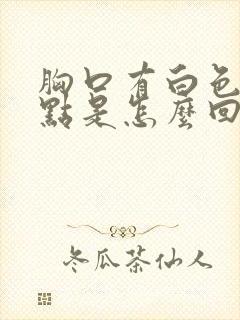 胸口有白色
點是怎麼回
冬瓜茶仙人